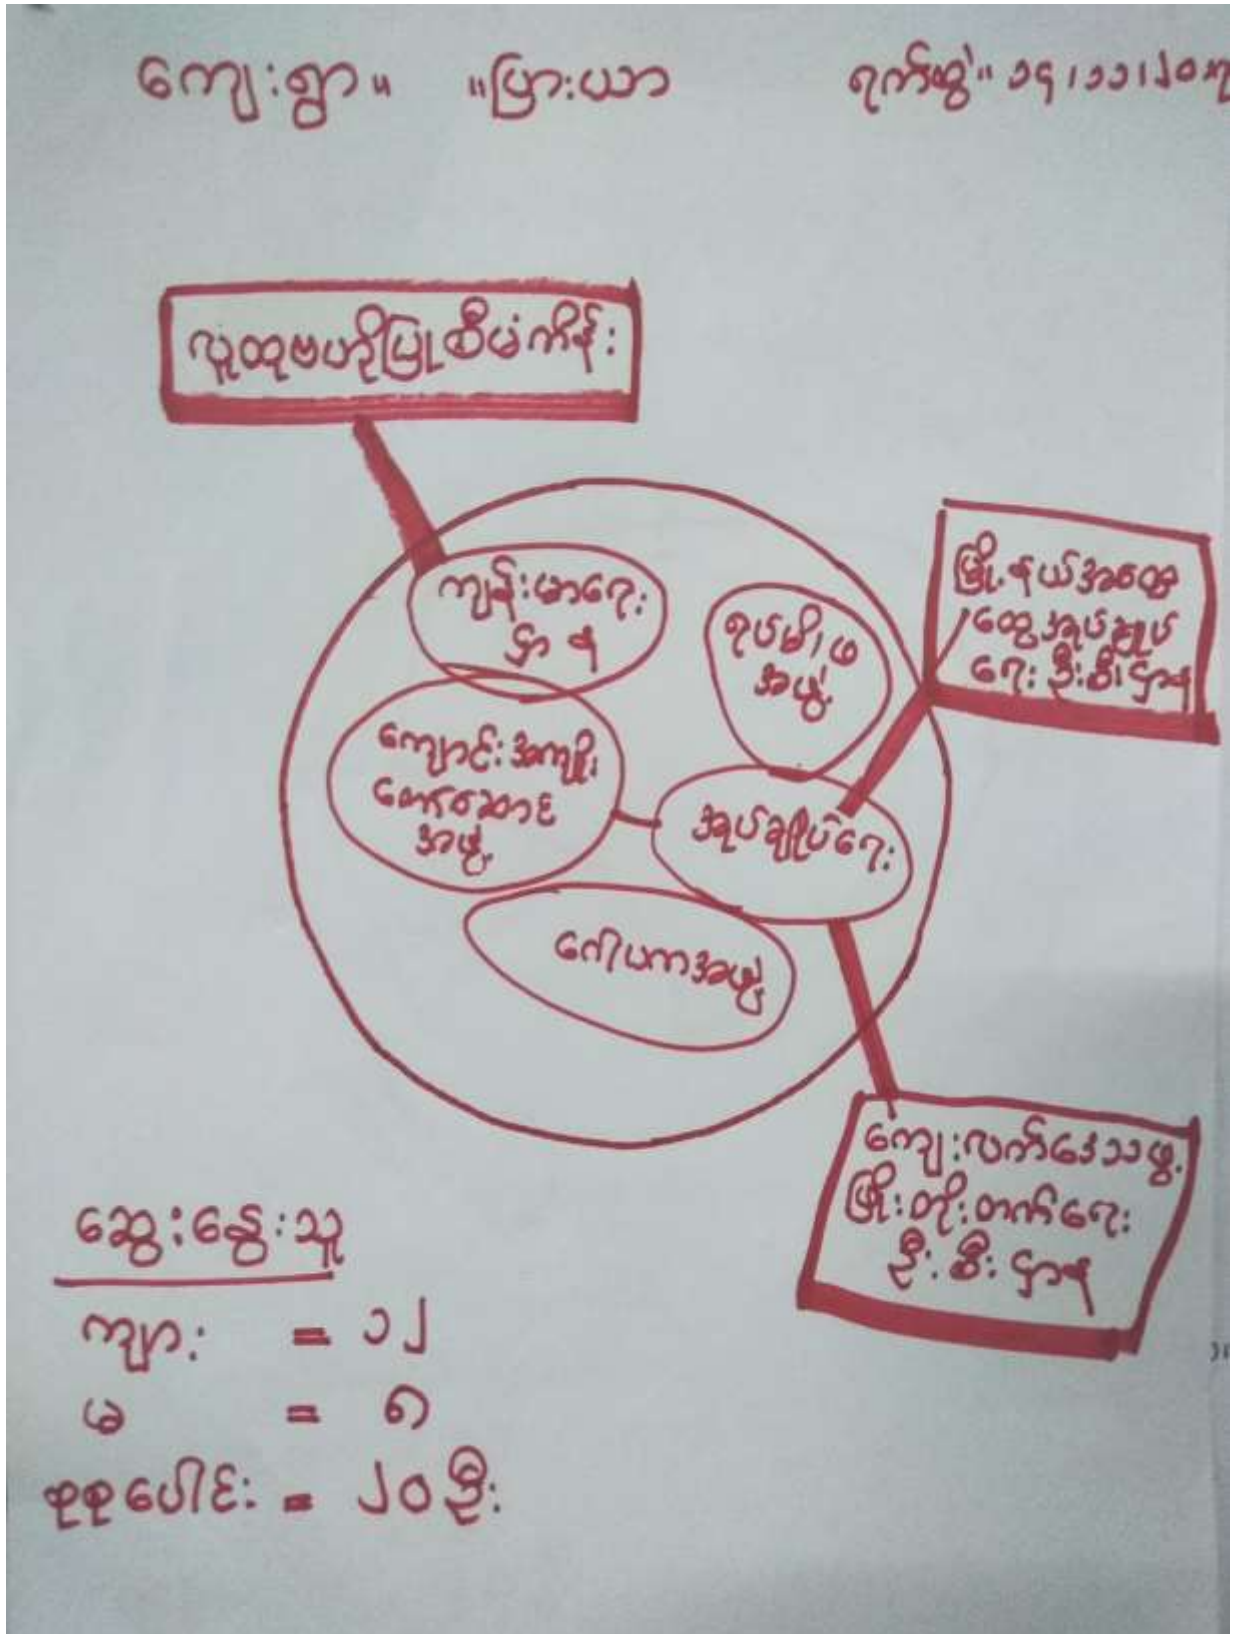 ကျေးရွာ။ ။ပြားယာ ရက်စွဲ။
လူထုဗဟိုပြုစီမံကိန်း
ကျန်းမာရေး
ဌာန
ရပ်မိ၊ဖ
အဖွဲ့
မြို့နယ်အထွေ
ထွေအုပ်ချုပ်
ရေးဦးစီးဌာန
ကျောင်းအကျိုး
တော်ဆောင်
အဖွဲ့
အုပ်ချုပ်ရေး
ဂေါပကအဖွဲ့
ကျေးလက်ဒေသဖွံ့
ဖြိုးတိုးတက်ရေး
ဦးစီးဌာန
ဆွေးနွေးသူ
ကျား = ၁၂
မ = ၈
စုစုပေါင်း = ၂၀ဦး